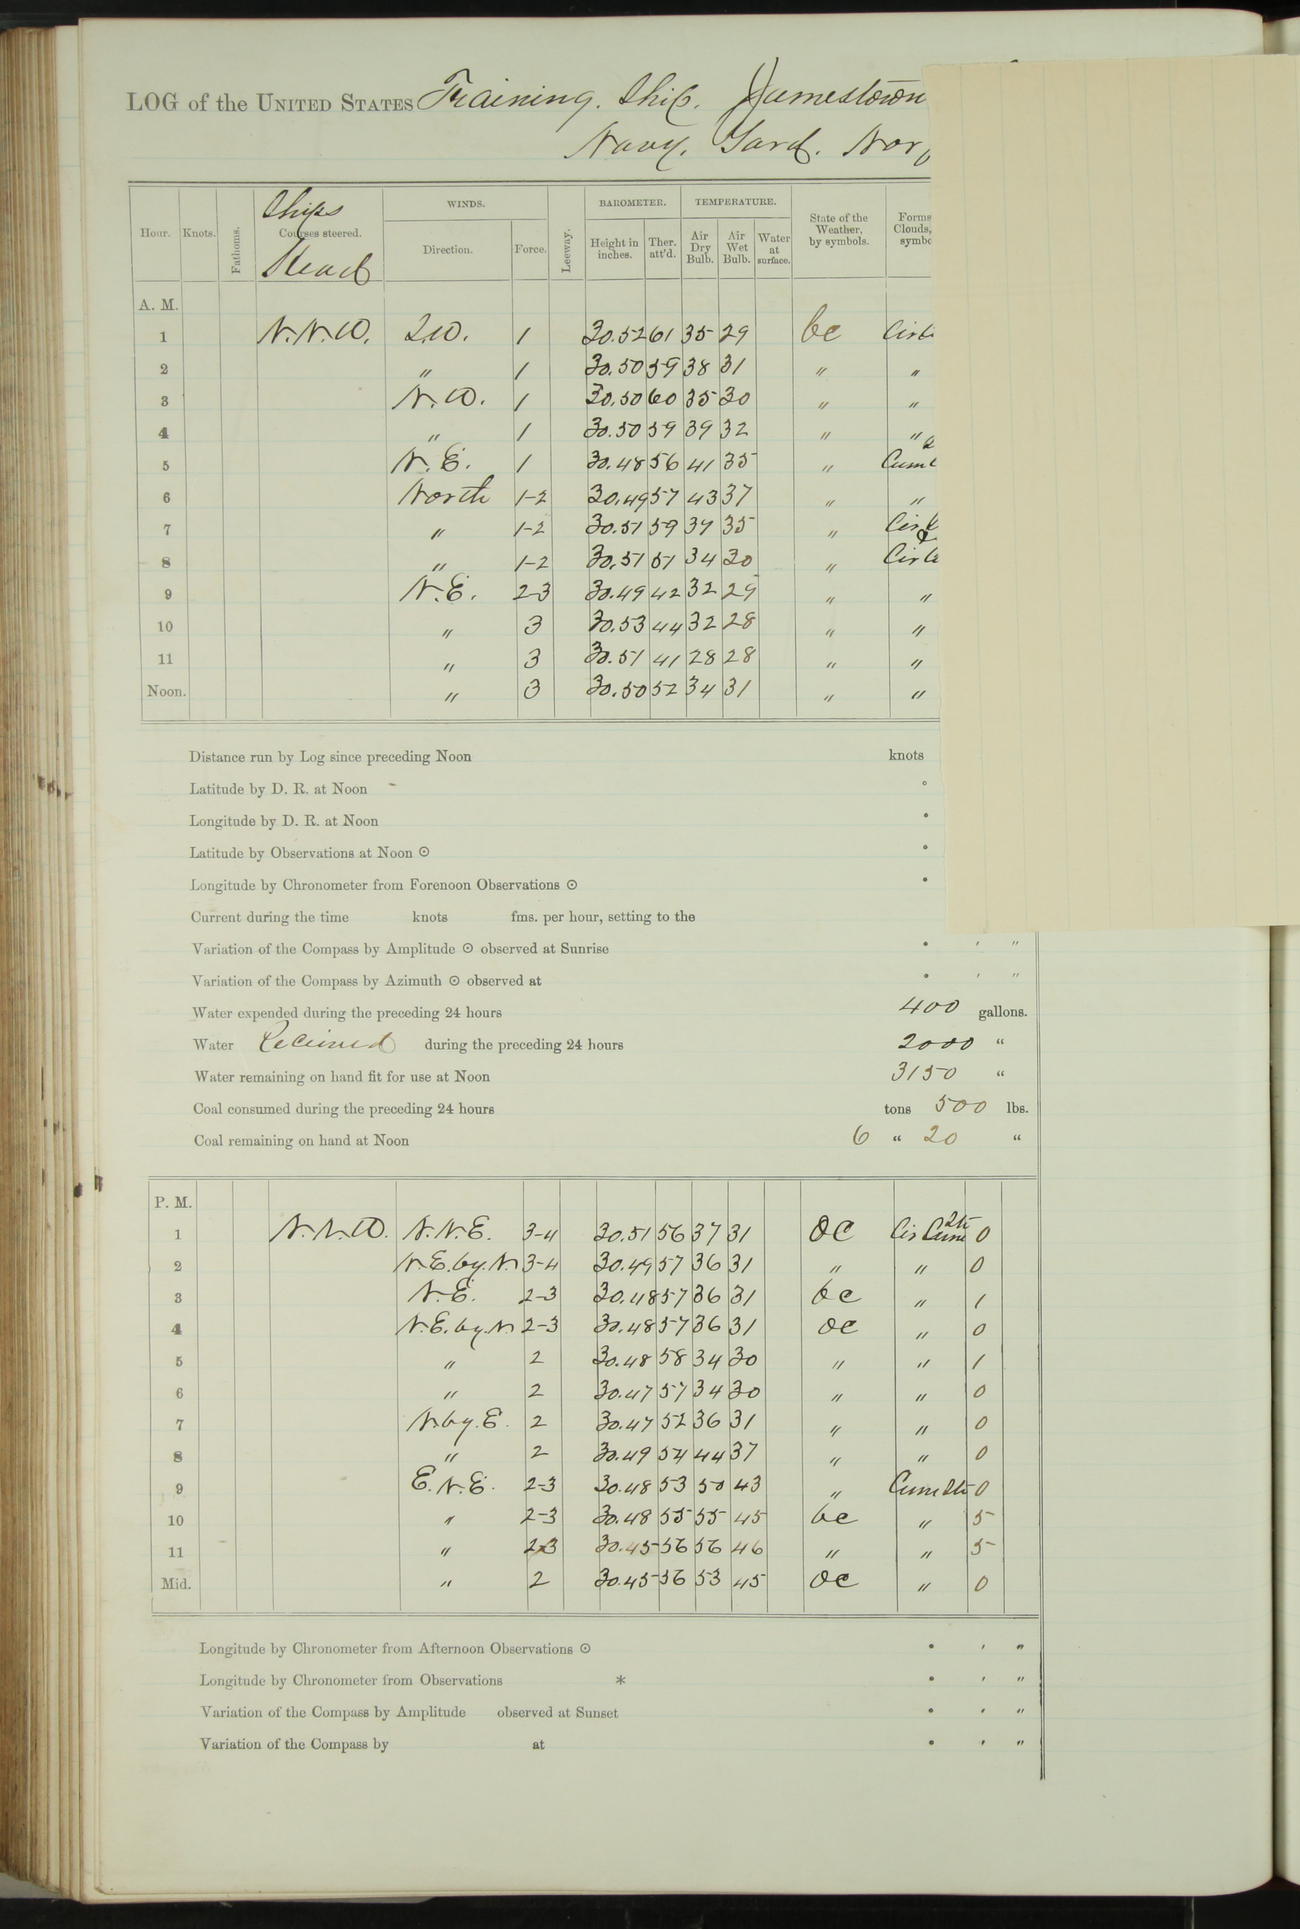 LOG of the UNITED STATES Training. Ship. Jamestown
Navy. Yard. Nor
Ships
Hour. Knots. Fathoms. Courses steered. WINDS. Direction. Force. Leeway. BAROMETER. Height in inches. Ther. att'd. TEMPERATURE. Air Dry Bulb. Air Wet Bulb. Water at surface. State of the Weather, by symbols. Forms Clouds, symbo
Head
A. M.
1 N.N.W. 1 30.52 61 35 29 bc
2 " 1 30.50 59 38 31 " "
3 N.W. 1 30.50 60 35 30 " "
4 " 1 30.50 59 39 32 " "
5 N.E. 1 30.48 56 41 35 " Cum
6 North 1-2 30.49 57 43 37 " "
7 " 1-2 30.51 59 39 35 " Cir
8 " 1-2 30.51 51 34 30 " Cir
9 N.E. 2-3 30.49 42 32 29 " "
10 " 3 30.53 44 32 28 " "
11 " 3 30.51 41 28 28 " "
Noon. " 3 30.50 52 34 31 " "
Distance run by Log since preceding Noon knots
Latitude by D. R. at Noon °
Longitude by D. R. at Noon °
Latitude by Observations at Noon ⊙ °
Longitude by Chronometer from Forenoon Observations ⊙ °
Current during the time knots fms. per hour, setting to the
Variation of the Compass by Amplitude ⊙ observed at Sunrise ° ' "
Variation of the Compass by Azimuth ⊙ observed at ° ' "
Water expended during the preceding 24 hours 400 gallons.
Water Received during the preceding 24 hours 2000 "
Water remaining on hand fit for use at Noon 3150 "
Coal consumed during the preceding 24 hours tons 500 lbs.
Coal remaining on hand at Noon 6 " 20 "
P. M.
1 N.N.W. N.N.E. 3-4 30.51 56 37 31 oc Cir Cum Str 0
2 N.E. by. N. 3-4 30.49 57 36 31 " " 0
3 N.E. 2-3 30.48 57 36 31 bc " 1
4 N.E. by. N. 2-3 30.48 57 36 31 oc " 0
5 " 2 30.48 58 34 30 " " 1
6 " 2 30.47 57 34 30 " " 0
7 N. by. E. 2 30.47 52 36 31 " " 0
8 " 2 30.49 54 44 37 " " 0
9 E.N.E. 2-3 30.48 53 50 43 " Cum Str 0
10 " 2-3 30.48 55 55 45 bc " 5
11 " 2-3 30.45 56 56 46 " " 5
Mid. " 2 30.45 56 53 45 oc " 0
Longitude by Chronometer from Afternoon Observations ⊙ ° ' "
Longitude by Chronometer from Observations * ° ' "
Variation of the Compass by Amplitude observed at Sunset ° ' "
Variation of the Compass by at ° ' "